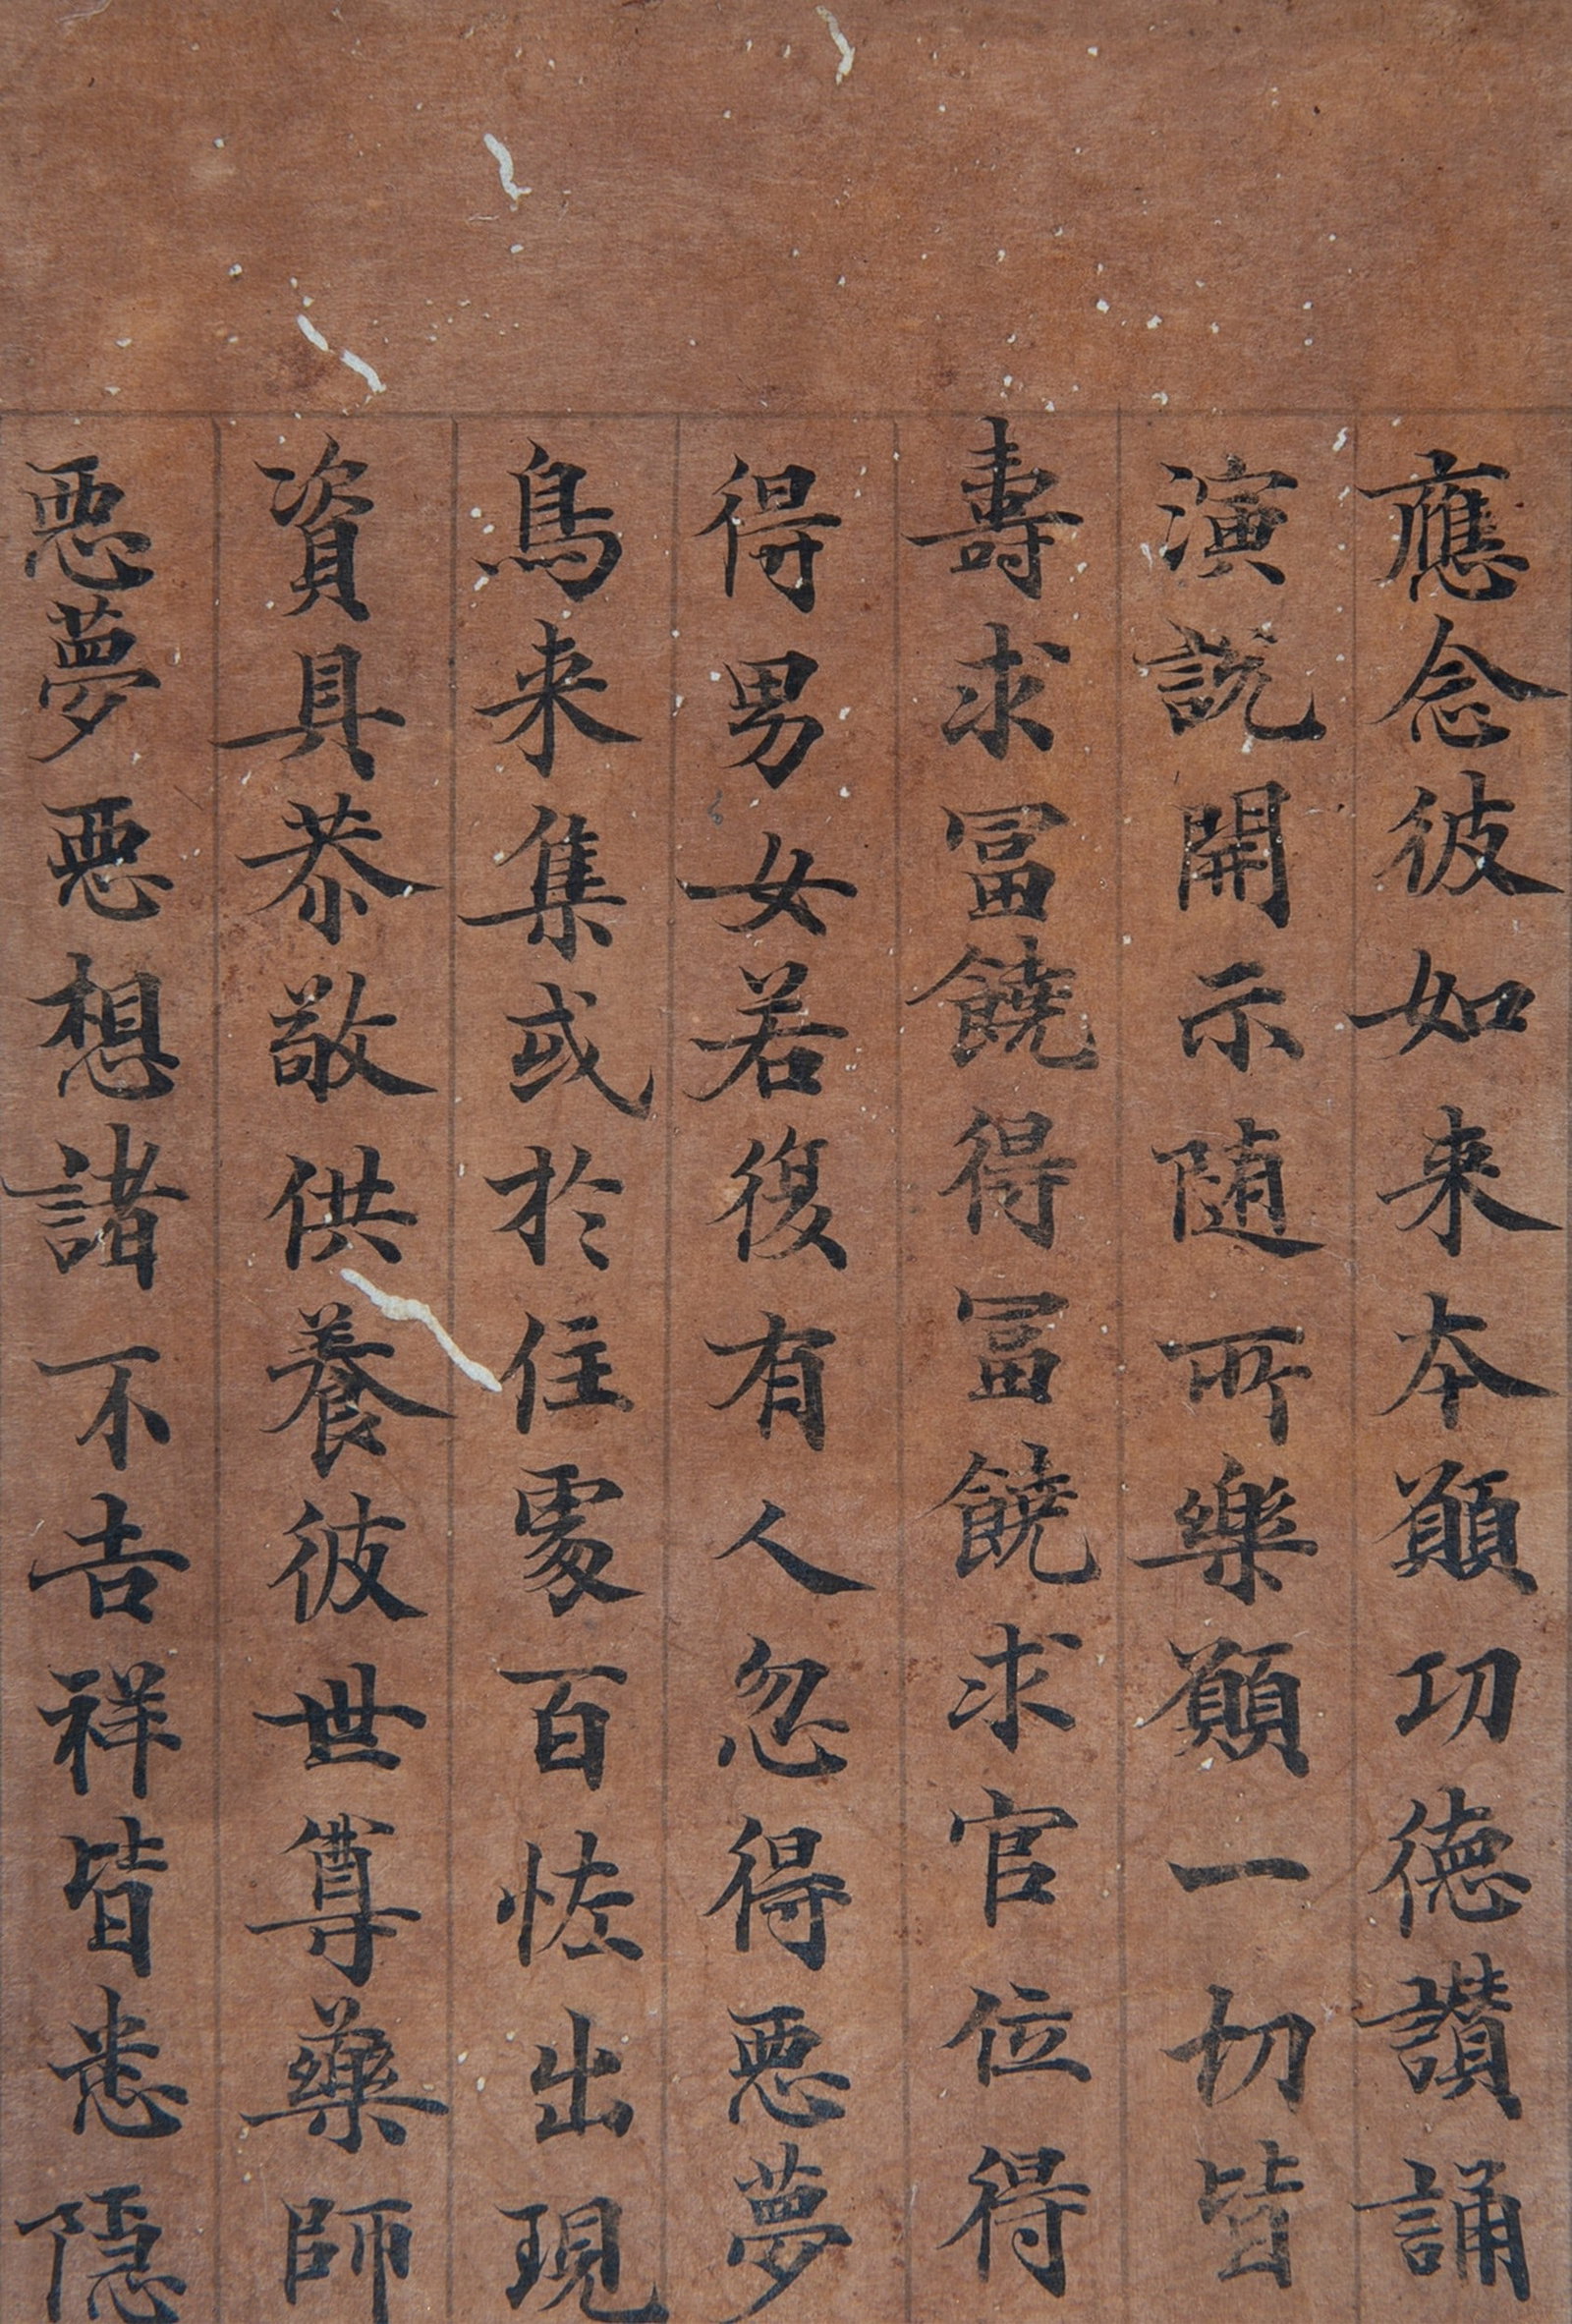 應念彼如来本願功德讚誦
演説開示随所樂願一切皆
壽求冨饒得冨饒求官位得
得男女若復有人忽得惡夢
鳥来集或於住處百恠出現
資具恭敬供養彼世尊藥師
惡夢惡想諸不吉祥皆悉隱